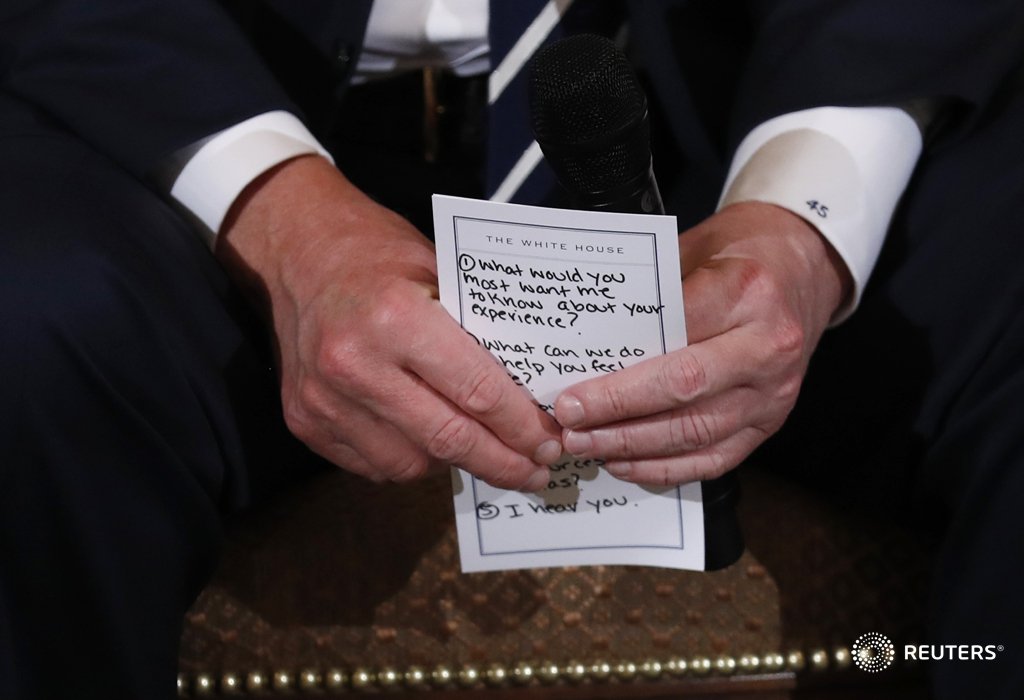 THE WHITE HOUSE
① What would you
most want me
to know about your
experience?
What can we do
help you feel
5 I hear you.
45
REUTERS®